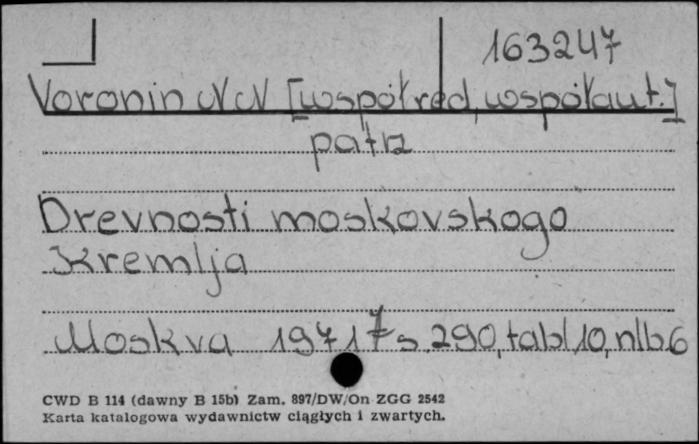 163247
Voronin N N [współred, współaut.]
patrz
Drevnosti moskovskogo
Kremlja
Moskva 1971 s. 290, tabl 10, nlb 6
CWD B 114 (dawny B 15b) Zam. 897/DW/On ZGG 2542
Karta katalogowa wydawnictw ciągłych i zwartych.